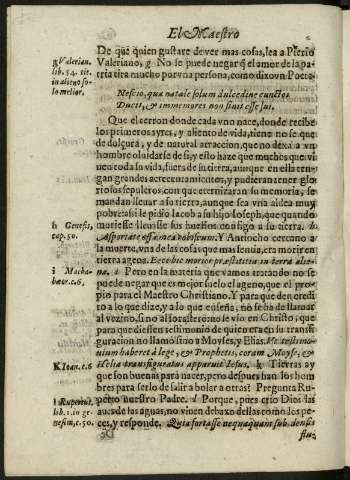 El Maestro
De que quien gustare de ver mas cosas, lea a Pierio
Valeriano, g No se puede negar q̃ el amor de la pa-
tria tira mucho por vna persona, como dixo vn Poeta.
g Valerian.
lib. 54. tit.
in alieno so-
lo melior.
Nescio, qua natale solum dulcedine cunctos
Ducit, & immemores non sinit esse sui.
Que el terron donde cada vno nace, donde recibe
los primeros ayres, y aliento de vida, tiene no se que
de dulçura, y de natural atraccion, que no dexa a vn
hombre oluidarse de si, y esto haze que muchos que vi-
uen toda su vida, fuera de su tierra, aunque en ella ten-
gan grandes acrecentamientos, y pudieran tener glo-
riosos sepulcros, con que eternizaran su memoria, se
mandan lleuar a su tierra, aunque sea vna aldea muy
pobre: assi le pidio Iacob a su hijo Ioseph, que quando
muriesse lleuasse sus huessos consigo a su tierra. h
Asportate ossa mea vobiscum. Y Antiocho cercano a
la muerte, vna de las cosas que mas sentia, era morir en
tierra agena. Ecce hic morior præ tristitia in terra alie-
na. i Pero en la materia que vamos tratando no se
puede negar que es mejor suelo el ageno, que el pro-
pio para el Maestro Christiano. Y para que den credi-
to a lo que dize, y a lo que enseña, no se ha de llamar
al vezino, sino al forastero: no se vio en Christo, que
para que diessen testimonio de quien era en su transfi-
guracion no llamò sino a Moyses, y Elias. Vt testimo-
nium haberet à lege, & Prophetis, coram Moyse, &
Helia transfiguratus apparuit Iesus. k Tierras ay
que son buenas para nacer, pero despues han los hom
bres para serlo de salir a bolar a otras? Pregunta Ru-
perto nuestro Padre. l Porque, pues crio Dios las
aues de las aguas, no viuen debaxo dellas como los pe-
ces, y responde. Quia fortasse nequaquam sub densis
h Genesis,
cap. 50.
i Macha-
bæor. c. 6,
K Ioan. c. 6
l Rupertus,
lib. 1. in ge-
nesim, c. 50.